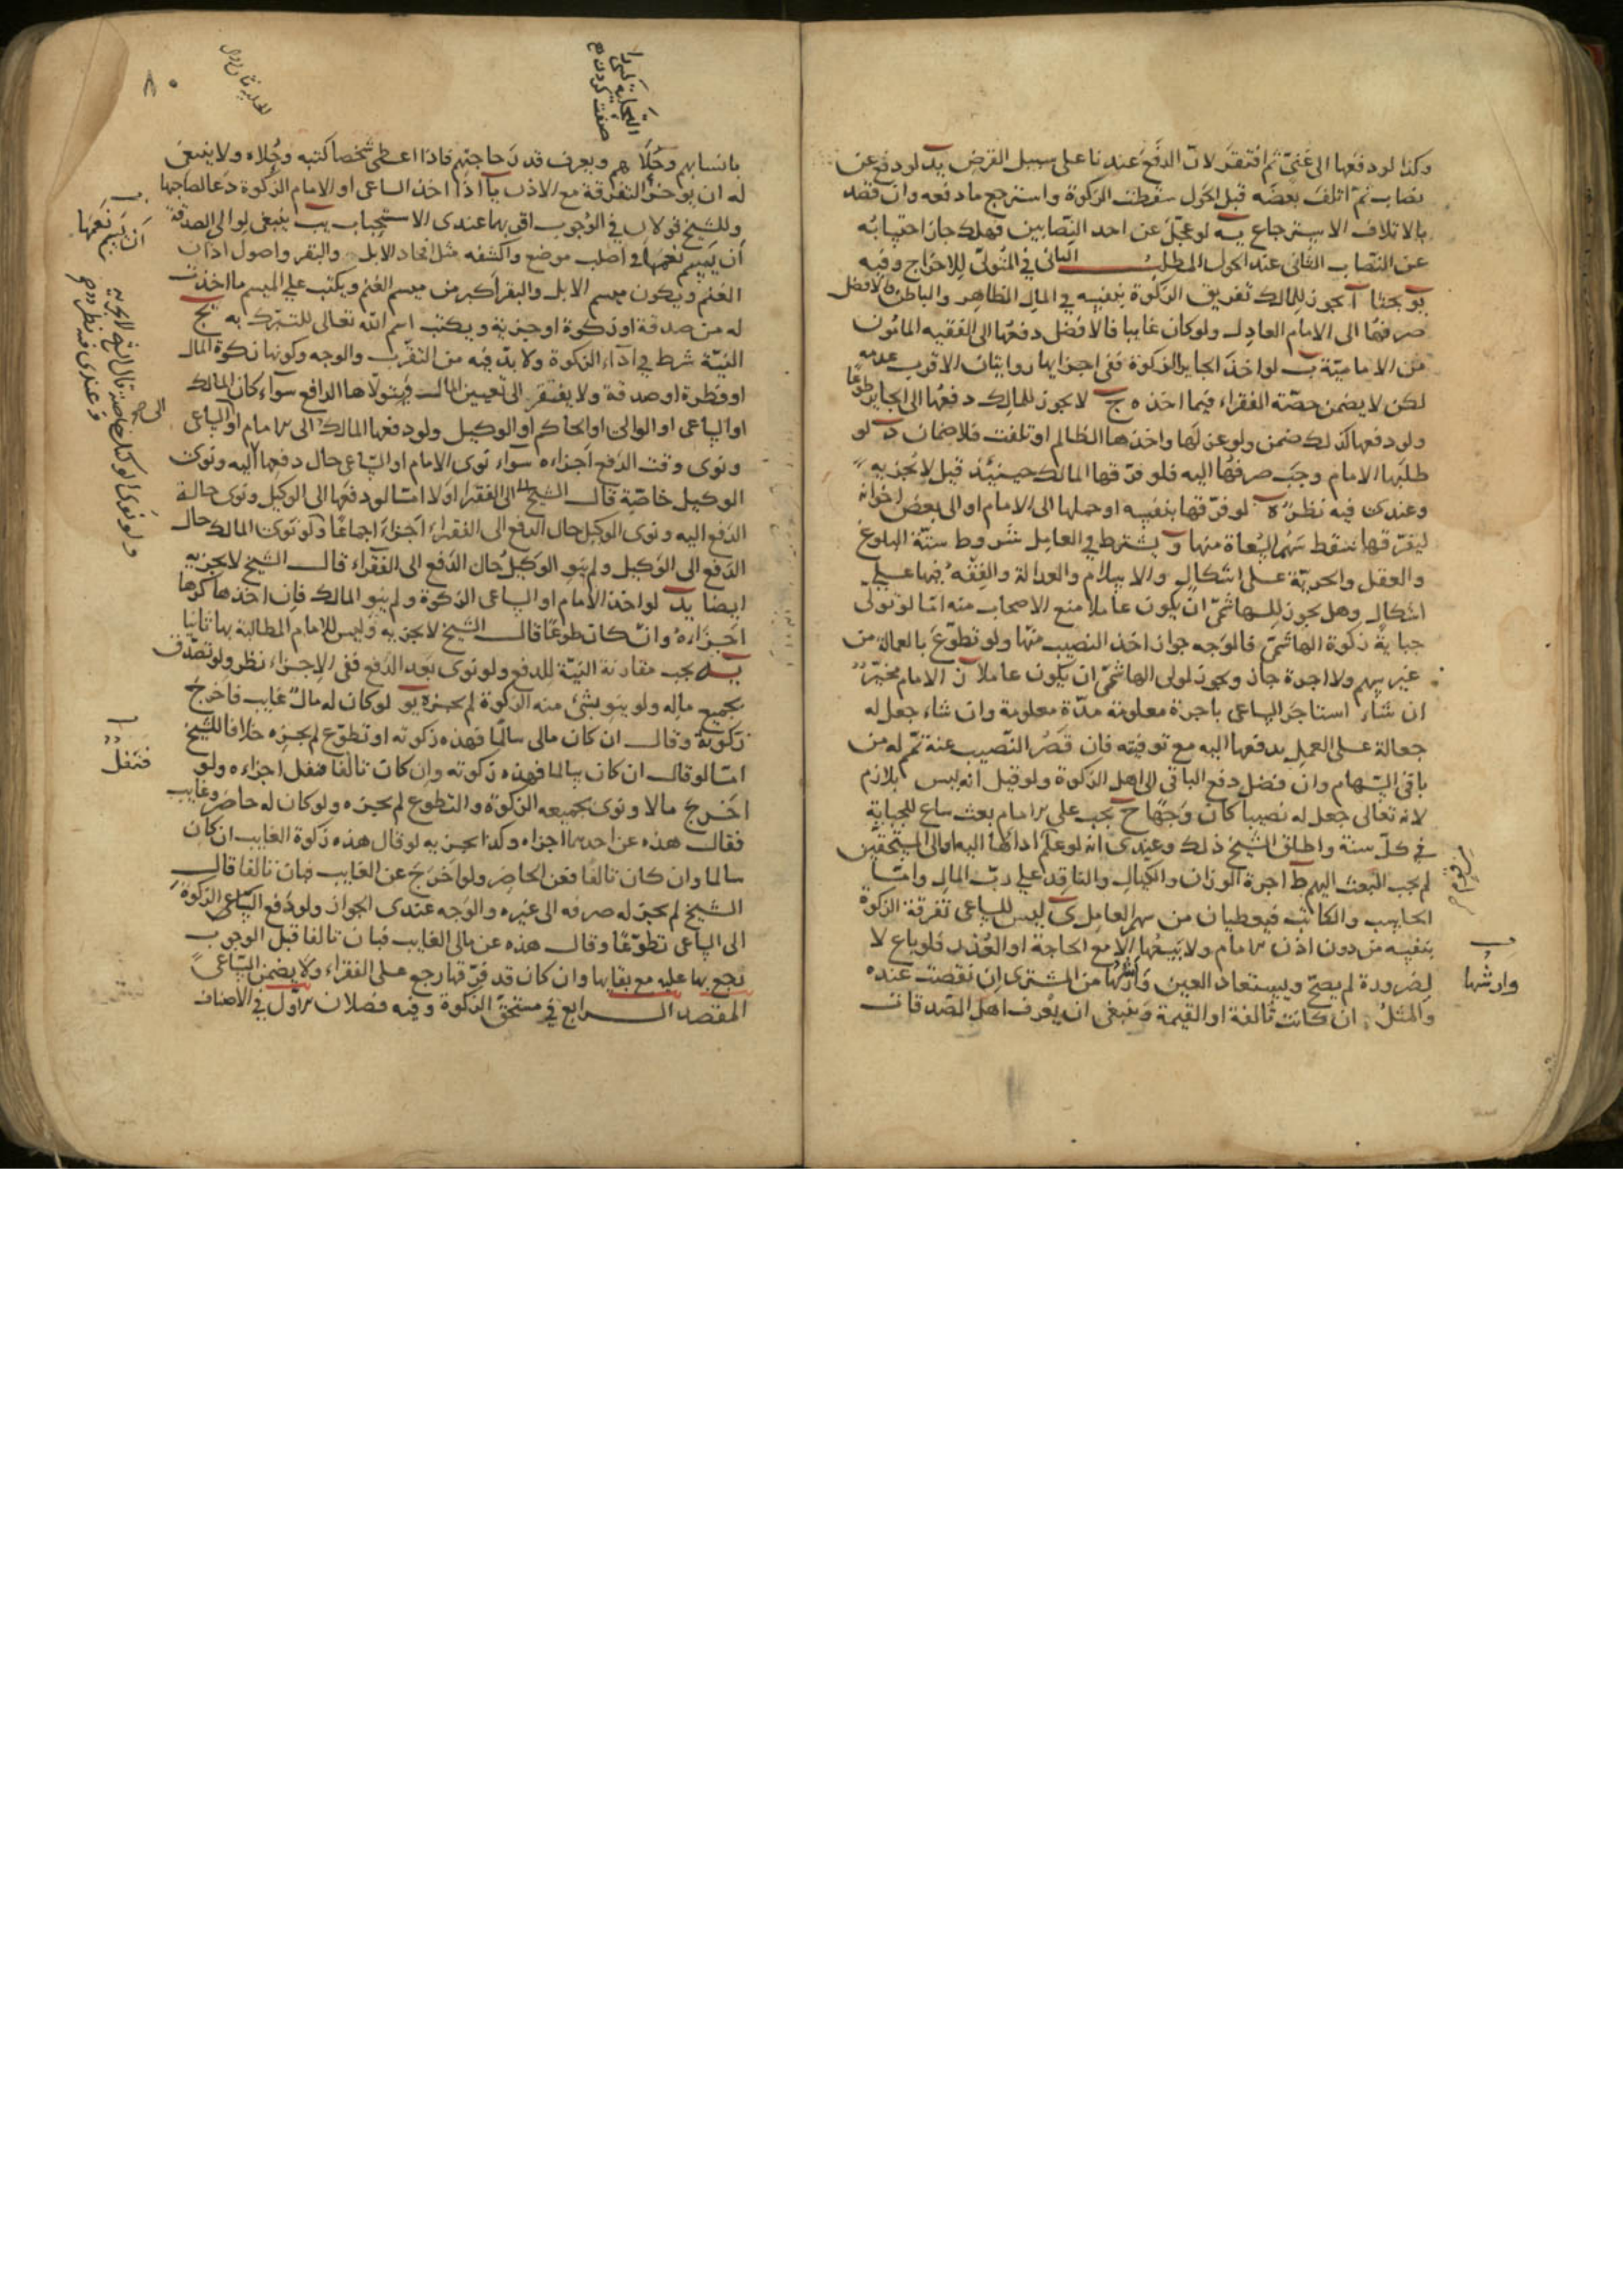 وكذا لو دفعها الى غنىّ ثم افتقر لانّ الدّفع عندنا على سبيل القرض يد لو دفع عن
نصاب ثم اتلف بعضه قبل الحول سقطت الزكوة واسترجع ما دفعه وان قصد
بالاتلاف الاسترجاع يه لو عجّل عن احد النّصابين فهلك جاز احتسابه
عن النّصاب الثانى عند الحول المطلب الثانى فى المتولّى للاخراج وفيه
يو بحثا آ يجوز للمالك تفريق الزكوة بنفسه فى المال الظاهر والباطن والافضل
صرفها الى الامام العادل ولو كان غايبا فالافضل دفعها الى الفقيه المامون
من الاماميّة ب لو اخذ الجاير الزكوة ففى اجزايها روايتان الاقرب عدمه
لكن لا يضمن حصّة الفقراء فيما اخذه ج لا يجوز للمالك دفعها الى الجاير طوعا
ولو دفعها كذلك ضمن ولو عزلها واخذها الظالم او تلفت فلا ضمان د لو
طلبها الامام وجب صرفها اليه فلو فرّقها المالك حينئذ قيل لا يجزيه
وعندى فيه نظر ه لو فرّقها بنفسه او حملها الى الامام او الى بعض اخوانه
ليفرّقها سقط سهم السّعاة منها و يشترط فى العامل شروط ستّة البلوغ
والعقل والحرية على اشكال والاسلام والعدالة والفقه فيها على
اشكال وهل يجوز للهاشمىّ ان يكون عاملا منع الاصحاب منه امّا لو تولّى
جباية زكوة الهاشمىّ فالوجه جواز اخذ النصيب منها ولو تطوّع بالعمالة من
غير سهم ولا اجرة جاز ويجوز لمولى الهاشمىّ ان يكون عاملا ز الامام مخيّر
ان شاء استاجر الساعى باجرة معلومة مدّة معلومة وان شاء جعل له
جعالة على العمل يدفعها اليه مع توفيته فان قصر النّصيب عنه تمّم له من
باقى السّهام وان فضل دفع الباقى الى اهل الزكوة ولو قيل انه ليس بلازم
لانه تعالى جعل له نصيبا كان وجها ح يجب على الامام بعث ساع للجباية
فى كلّ سنة واطلق الشيخ ذلك وعندى انه لو علم اداءها اليه او الى المستحقّين
لم يجب البعث اليهم ط اجرة الوزان والكيال والناقد على ربّ المال وامّا
الحاسب والكاتب فيعطيان من سهم العامل ى ليس للساعى تفرقة الزكوة
بنفسه من دون اذن الامام ولا بيعها الا مع الحاجة او العذر فلو باع لا
لضرورة لم يصحّ ويستعاد العين وارشها من المشترى ان نقصت عنده
وارشها
والمثل ان كانت تالفة او القيمة وينبغى ان يعرف اهل الصّدقات
٨٠
بانسابهم وحُلَاهم ويعرف قدر حاجتهم فاذا اعطى شخصا كتبه وحُلاه ولا ينبغى
له ان يوخر التفرقة مع الاذن يا اذا اخذ الساعى او الامام الزكوة دعا لصاحبها
وللشيخ قولان فى الوجوب اقربهما عندى الاستحباب يب ينبغى لوالى الصدقة
ان يسم نعمها
ان يسم نعمها فى اصلب موضع واكشفه مثل افخاد الابل والبقر واصول اذان
الغنم ويكون ميسم الابل والبقر اكبر من ميسم الغنم ويكتب على الميسم ما اخذت
له من صدقة او زكوة او جزية ويكتب اسم الله تعالى للتبرّك به يج
النيّة شرط فى اداء الزكوة ولا بدّ فيه من التقرّب والوجه وكونها زكوة المال
او فطرة او صدقة ولا يفتقر الى تعيين المال ويتولّاها الدافع سواء كان المالك
او الساعى او الوالى او الحاكم او الوكيل ولو دفعها المالك الى الامام او الساعى
ونوى وقت الدّفع اجزاه سواء نوى الامام او السّاعى حال دفعها اليه ونوى
الوكيل خاصّة قال الشيخ الى الفقراء او لا امّا لو دفعها الى الوكيل ونوى حالة
ولو نوى الوكيل خاصة قال الشيخ لا يجزيه
وعندى فيه نظر
الدّفع اليه ونوى الوكيل حال الدفع الى الفقراء اجزاء اجماعا ولو نوى المالك حال
الدّفع الى الوكيل ولم ينو الوكيل حال الدّفع الى الفقراء قال الشيخ لا يجزيه
ايضا يد لو اخذ الامام او الساعى الزكوة ولم ينو المالك فان اخذها كرها
اجزاءه وان كان طوعا قال الشيخ لا يجزيه وليس للامام المطالبة بها ثانيا
يه يجب مقارنة النيّة للدفع ولو نوى بعد الدّفع ففى الاجزاء نظر ولو تصدّق
بجميع ماله ولو ينو بشئ منه الزكوة لم يجزه يو لو كان له مال غايب فاخرج
زكوته وقال ان كان مالى سالما فهذه زكوته او تطوّع لم يجزه خلافا للشيخ
امّا لو قال ان كان سالما فهذه زكوته وان كان تالفا فنفل اجزاءه ولو
فتنفل
اخرج مالا ونوى بجميعه الزكوة والتطوع لم يجزه ولو كان له حاضر وغايب
فقال هذه عن احدهما اجزاء وكذا يجزيه لو قال هذه زكوة الغايب ان كان
سالما وان كان تالفا فعن الحاضر ولو اخرج عن الغايب فبان تالفا قال
الشيخ لم يجز له صرفه الى غيره والوجه عندى الجواز ولو دفع السّاعى الزكوة
الى الساعى تطوّعا وقال هذه عن مالى الغايب فبان تالفا قبل الوجوب
رجع بها عليه مع بقايها وان كان قد فرّقها رجع على الفقراء ولا يضمن السّاعى
المقصد الرابع فى مستحقّ الزكوة وفيه فصلان الاول فى الاصناف